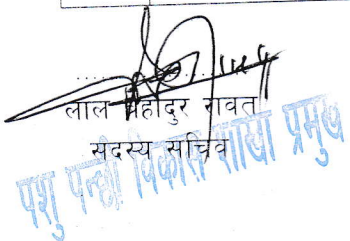 लाल बहादुर रावत
सदस्य सचिव
पशु पन्छी विकास शाखा प्रमुख